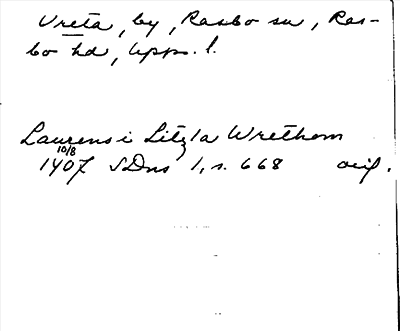 Vreta, by, Rasbo sn, Ras-
bo hd, Upps. l.
Laurens i Litzla Wrethom
10/8
1407 SDns 1, s. 668 orig.